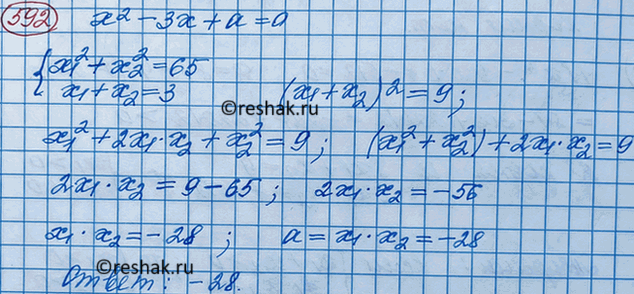 592 x² - 3x + a = 0
{ x₁² + x₂² = 65
x₁ + x₂ = 3 (x₁ + x₂)² = 9;
©reshak.ru
x₁² + 2x₁·x₂ + x₂² = 9; (x₁² + x₂²) + 2x₁·x₂ = 9
2x₁·x₂ = 9 - 65; 2x₁·x₂ = -56
x₁·x₂ = -28; a = x₁·x₂ = -28
©reshak.ru
Ответ: -28.